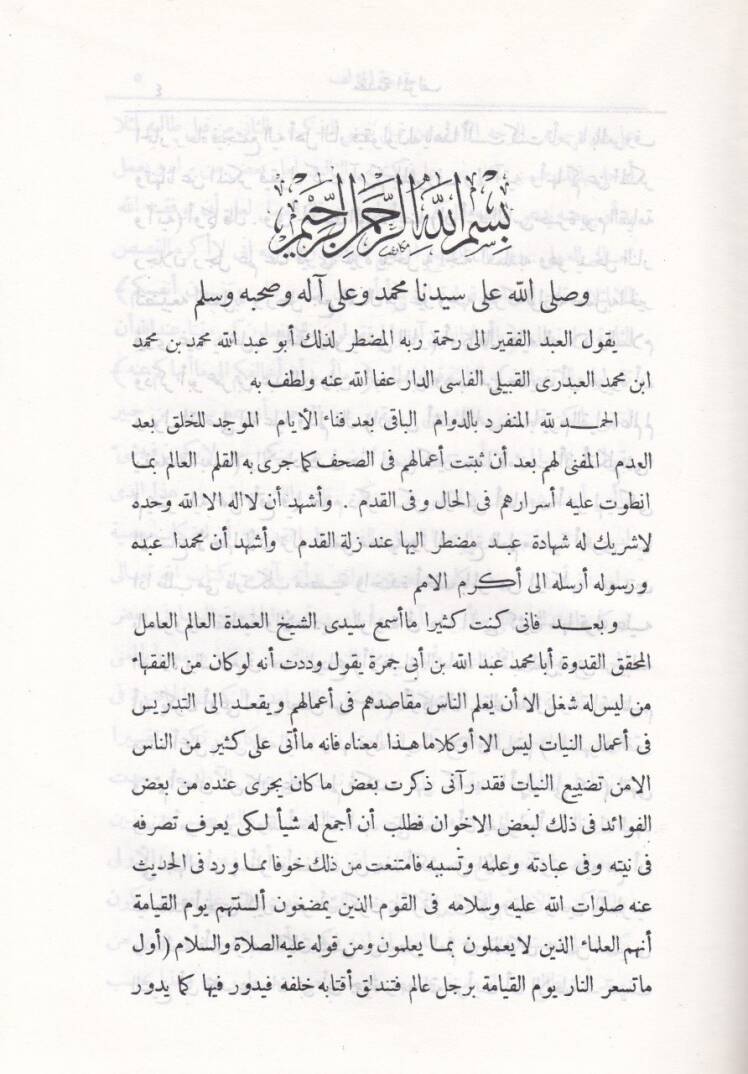 بسم الله الرحمن الرحيم
وصلى الله على سيدنا محمد وعلى آله وصحبه وسلم
يقول العبد الفقير الى رحمة ربه المضطر لذلك أبو عبد الله محمد بن محمد
ابن محمد العبدرى القبيلى الفاسى الدار عفا الله عنه ولطف به
الحمد لله المنفرد بالدوام الباقى بعد فناء الأيام الموجد للخلق بعد
العدم المفنى لهم بعد أن ثبتت أعمالهم فى الصحف كما جرى به القلم العالم بما
انطوت عليه أسرارهم فى الحال وفى القدم . وأشهد أن لا اله الا الله وحده
لاشريك له شهادة عبد مضطر اليها عند زلة القدم وأشهد أن محمدا عبده
ورسوله أرسله الى أكرم الامم
وبعد فانى كنت كثيرا ماأسمع سيدى الشيخ العمدة العالم العامل
المحقق القدوة أبا محمد عبد الله بن أبى جمرة يقول وددت أنه لو كان من الفقهاء
من ليس له شغل الا أن يعلم الناس مقاصدهم فى أعمالهم ويقعد الى التدريس
فى أعمال النيات ليس الا أوكلاما هذا معناه فانه ماأتى على كثير من الناس
الامن تضييع النيات فقد رآنى ذكرت بعض ماكان يجرى عنده من بعض
الفوائد فى ذلك لبعض الاخوان فطلب أن أجمع له شيأ لكى يعرف تصرفه
فى نيته وفى عبادته وعلمه وتسببه فامتنعت من ذلك خوفا بما ورد فى الحديث
عنه صلوات الله عليه وسلامه فى القوم الذين يمضغون ألسنتهم يوم القيامة
أنهم العلماء الذين لايعملون بما يعلمون ومن قوله عليه الصلاة والسلام (أول
ماتسعر النار يوم القيامة برجل عالم فتندلق أقتابه خلفه فيدور فيها كما يدور